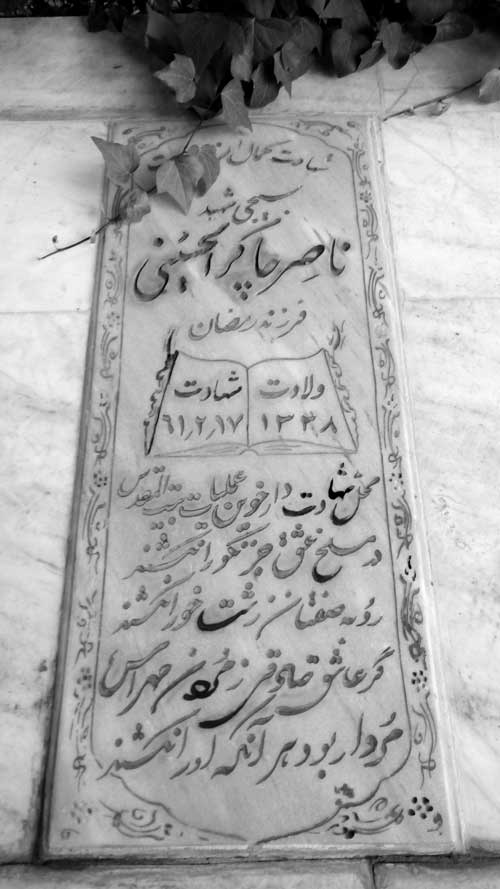 شهادت کمال انسان است
بسیجی شهید
ناصر چاکرالحسینی
فرزند رمضان
ولادت شهادت
۱۳۳۸ ۶۱٫۲٫۱۷
محل شهادت دارخوین عملیات بیت المقدس
در مسلخ عشق جز نکو را نکشند
روبه صفتان زشت خو را نکشند
گر عاشق صادقی ز مردن مهراس
مردار بود هر آنکه او را نکشند